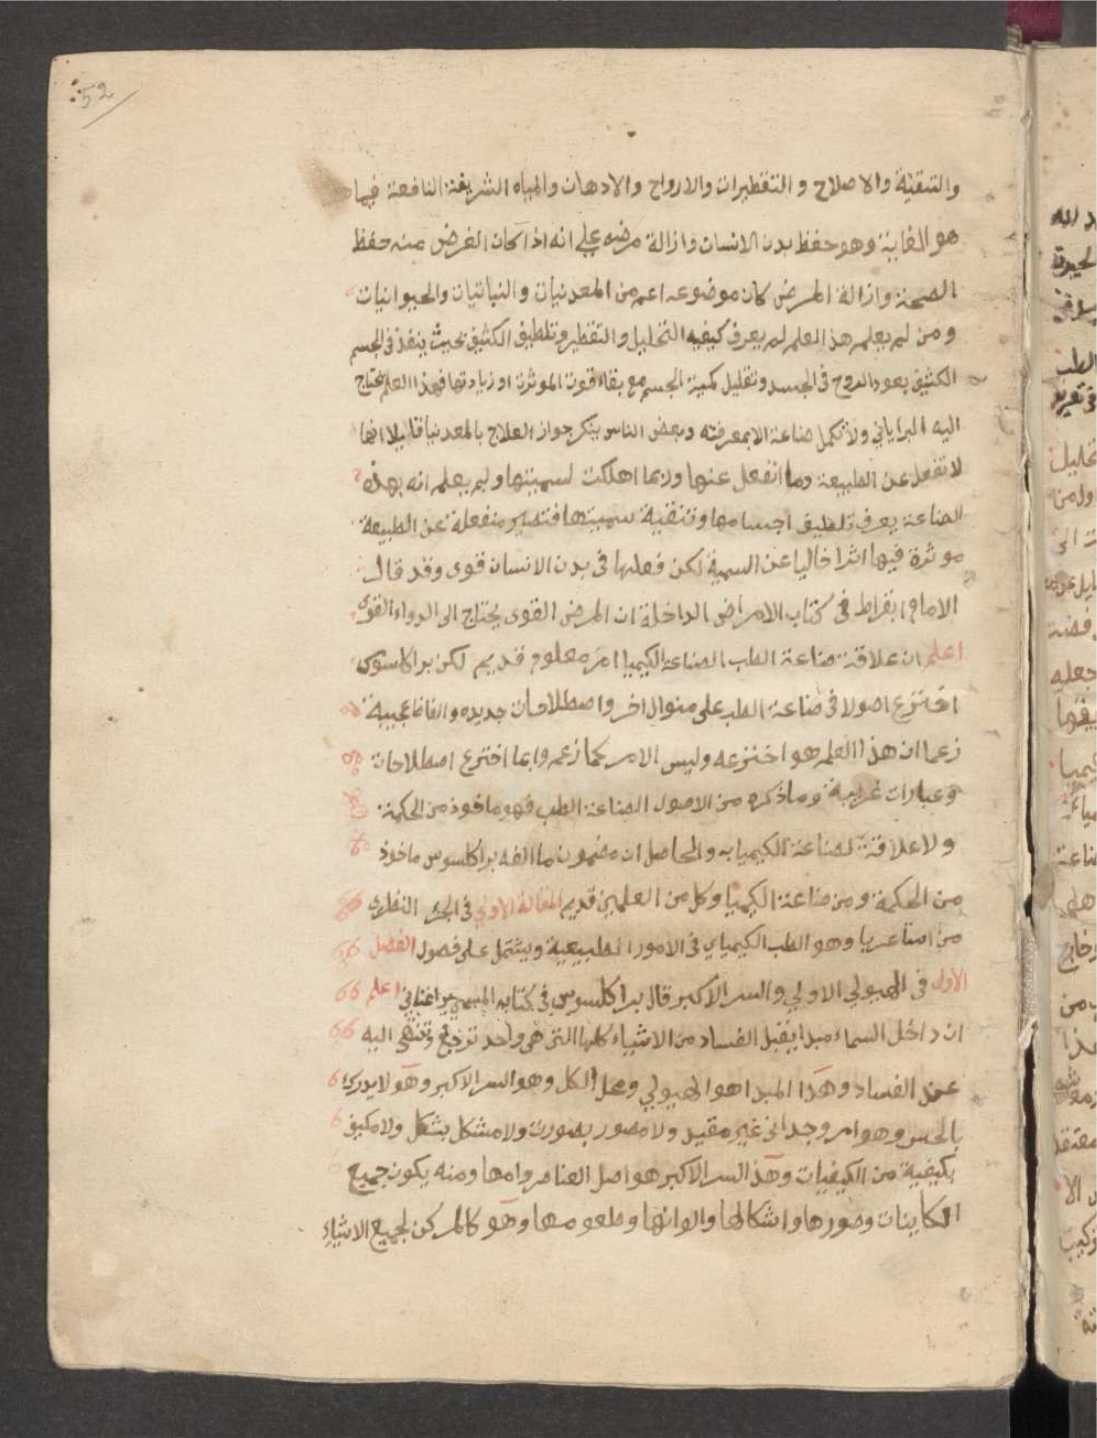 52
والتنقية والاصلاح والتقطيرات والارواح والادهان والمياه الشريفة النافعة فيما
هو الغاية وهو حفظ بدن الانسان وازالة مرضه على انه اذا كان الغرض منه حفظ
الصحة وازالة المرض كان موضوعه اعم من المعدنيات والنباتيات والحيوانيات
ومن لم يعلم هذا العلم لم يعرف كيفيه التحليل والتقطير وتلطيف الكثيف بحيث ينفذ فى الجسم
الكثيف بعود الروح فى الجسد وتقليل كمية الجسم مع بقاء قوت الموثرة او زيادتها فهذا العلم يحتاج
اليه البراياني ولا تكمل صناعة الا بمعرفته وبعض الناس ينكر جواز العلاج بالمعدنيا قايلا انها
لا تفعل عن الطبيعة وما انفعل عنها وربما اهلكت لسميتها ولم يعلم انه بهذه
الصناعة يعرف تلطيف اجسامها وتنقية سميتها فتصير منفعلة عن الطبيعة
موثرة فيها اثرا خاليا عن السمية لكن فعلها فى بدن الانسان قوى وقد قال
الامام ابقراط فى كتاب الامراض الداخلة ان المرض القوى يحتاج الى الدواء القوى
اعلم ان علاقة صناعة الطب الصناعة الكيميا امر معلوم قديم لكن براكلسوس
اخترع اصولا فى صناعة الطب على منوال اخر واصطلاحات جديده والفاظا عجيبة
زعما ان هذا العلم هو اخترعه وليس الامر كما زعم وانما اخترع اصطلاحات
وعبارات غريبة وما ذكره من الاصول الصناعة الطب فهو ماخوذ من الحكمة
ولا علاقة لصناعة الكيميا به والحاصل ان مضمون ما الفه براكلسوس ماخوذ
من الحكمة ومن صناعة الكيميا وكل من العلمين قديم المقالة الاولي فى الجزء النظرى
من اسباغريا وهو الطب الكيمياي فى الامور الطبيعية ويشتمل على فصول الفصل
الاول فى الهيولي الاولي والسر الاكبر قال براكلسوس فى كتابه المسمى اعلم
ان داخل السماء مبدا يقبل الفساد من الاشياء كلها التى هى واحد ترجع وتنتهى اليه
عند الفساد وهذا المبدا هو الهيولي ومحل الكل وهو السر الاكبر وهو لا يدرك
بالحس وهو امر وجدانى غير مقيد ولا مصور بصورت ولا مشكل بشكل ولا مكيف
بكيفية من الكيفيات وهذا السر الاكبر هو اصل العناصر وامها ومنه يكون جميع
الكاينات وصورها واشكالها والوانها وطعومها وهو كالمركن لجميع الاشياء